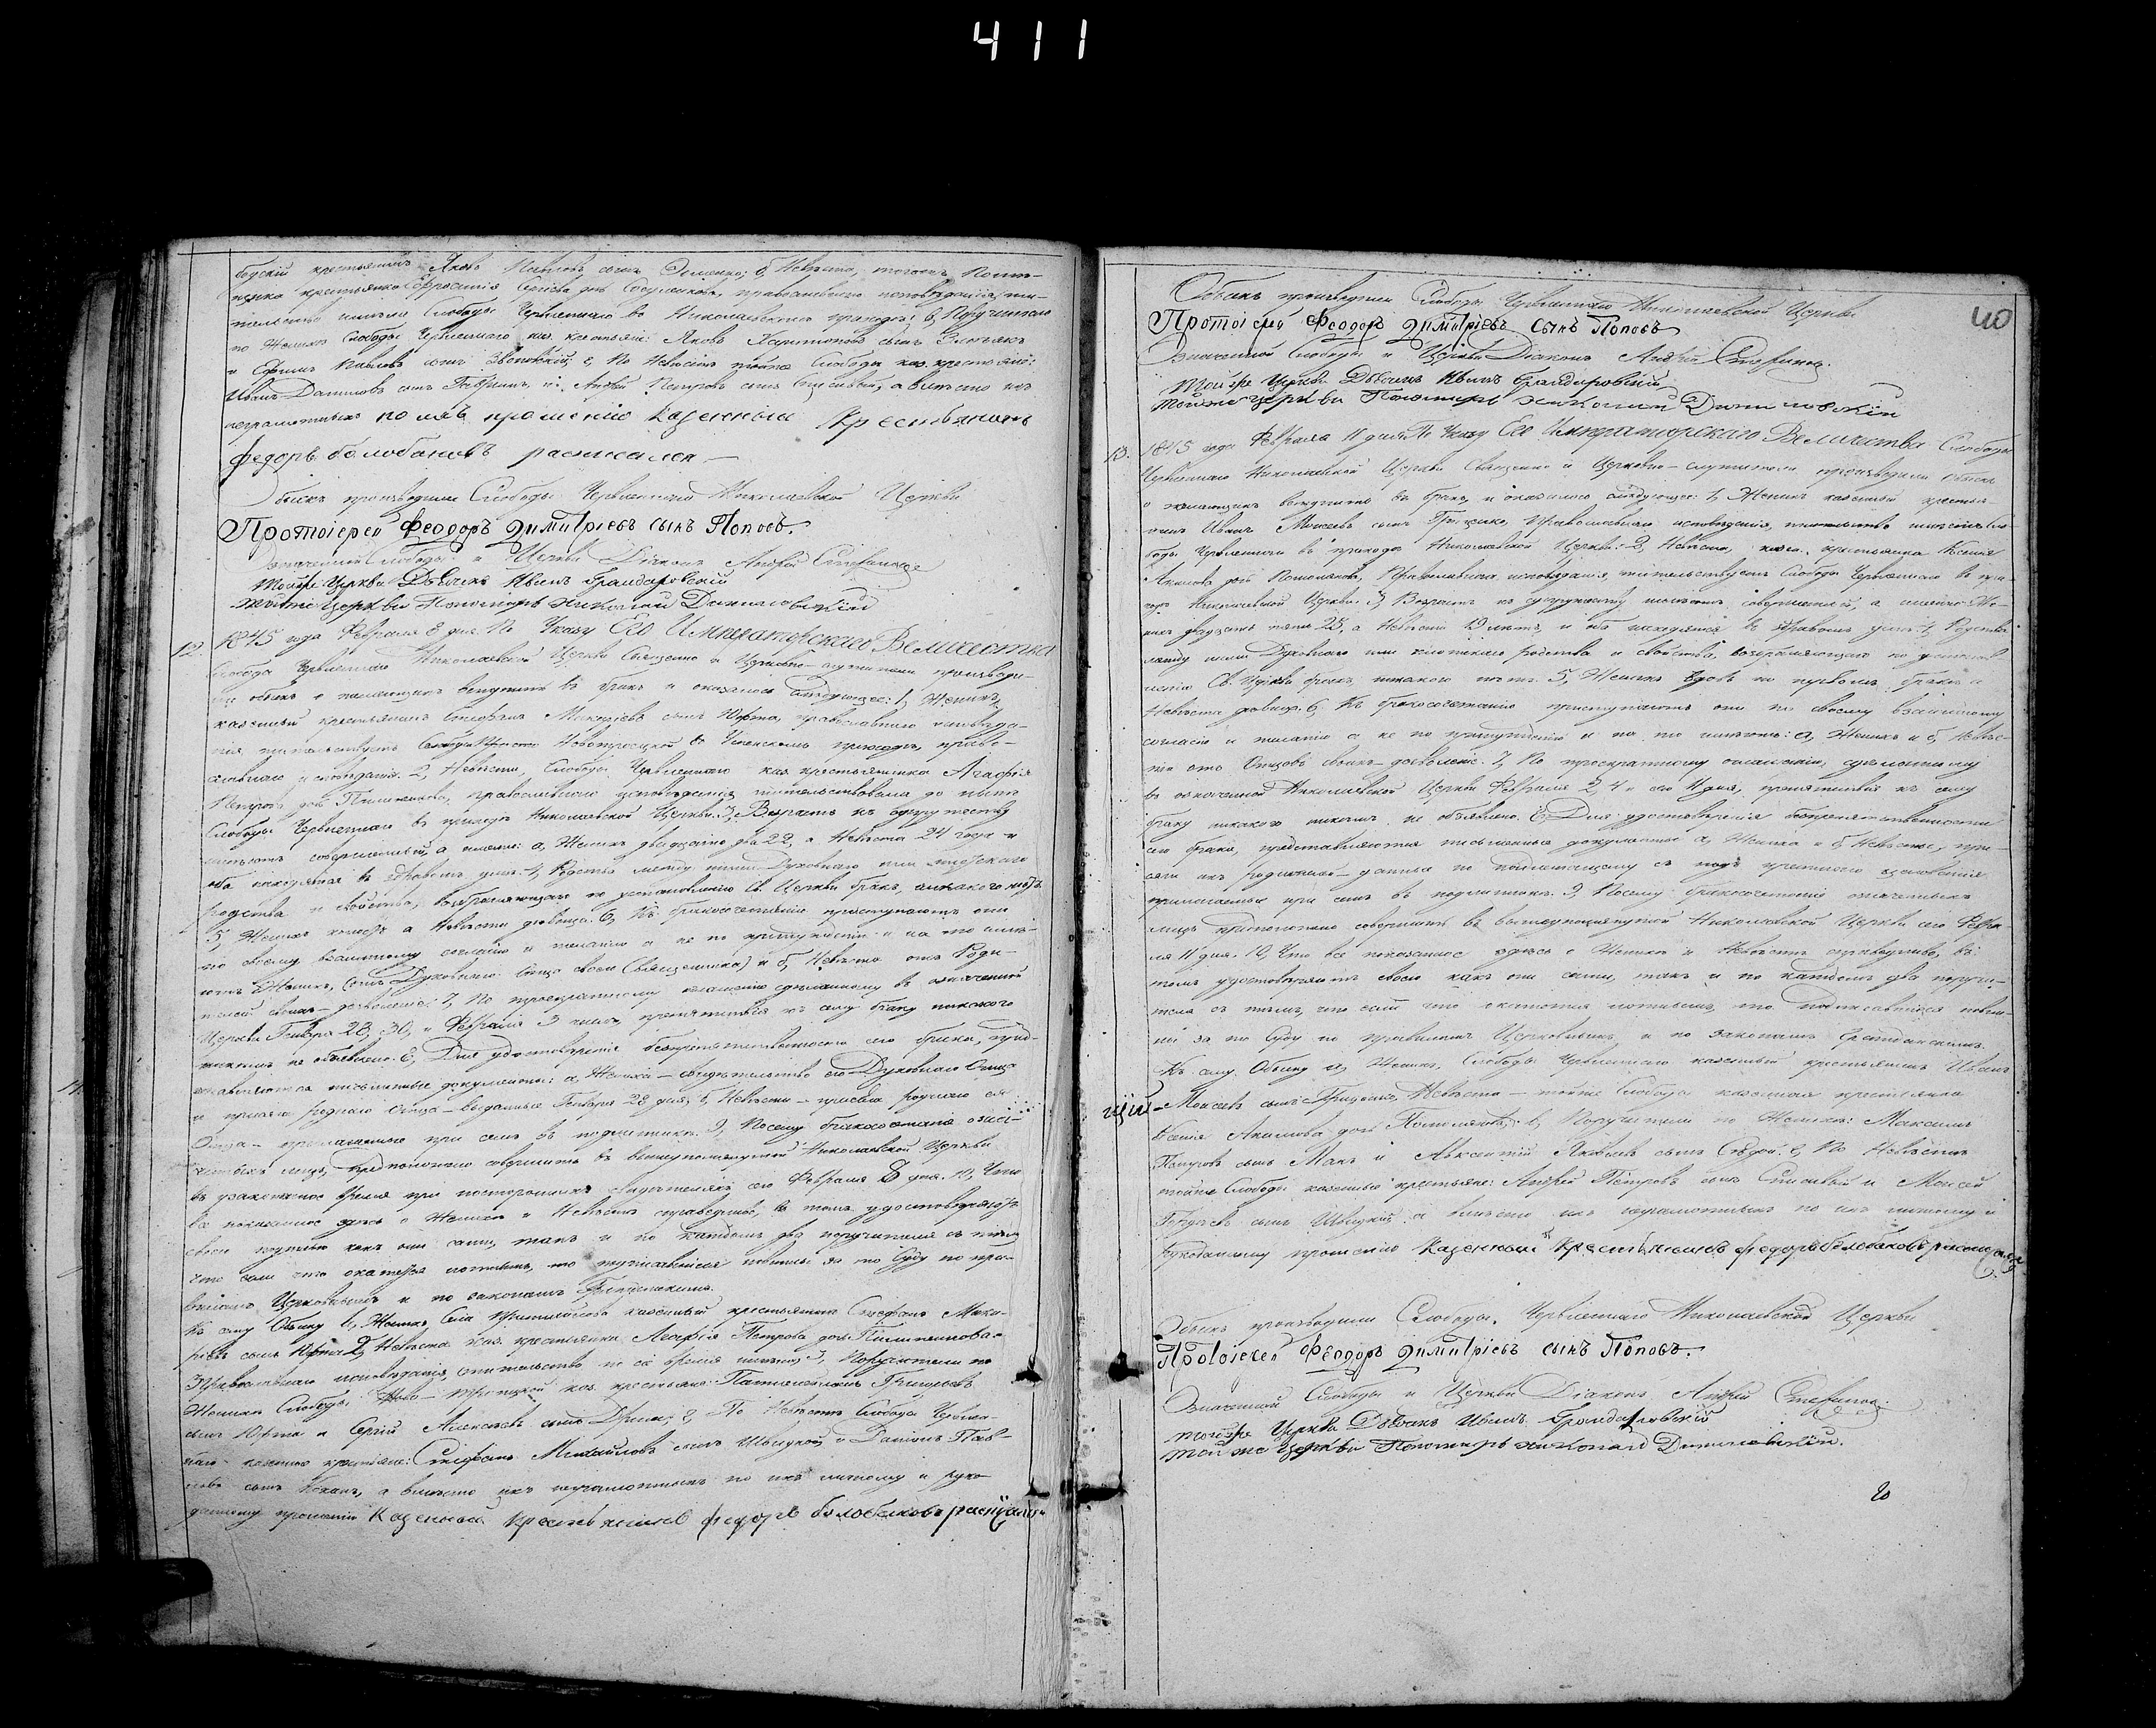 411
40
бодскій крестьянинъ Яковъ Павловъ сынъ б, Невѣста,
крестьянка Сергіева дочь православнаго исповѣданія, жи-
тельство имѣли Слободы Червленнаго въ Николаевскомъ приходѣ;
по Женихѣ Слободы Червленнаго каз. крестьяне: Яковъ Харитоновъ сынъ
и Павловъ сынъ г, По Невѣстѣ тойже Слободы каз. крестьяне:
Иванъ Даниловъ сынъ и Андрей Петровъ сынъ а вмѣсто ихъ
неграмотныхъ по ихъ прошенію казенный Крестьянинъ
федоръ болобановъ росписался
Обыскъ производили Слободы Червленнаго Николаевской Церкви
Протоіерей Феодоръ Димитріевъ сынъ Поповъ.
Означенной Слободы и Церкви Діаконъ Андрей
тойже Церкви Дьячекъ Иванъ Грандаровскій
тойже церкви Пономарь Николай Даниловскій
12. 1845 года Февраля 8 дня. По Указу Его Императорскаго Величества
Слободы Червленнаго Николаевской Церкви Священно и Церковно-служители производи-
ли обыскъ о желающихъ вступить въ бракъ и оказалось слѣдующее: 1, Женихъ,
казенный крестьянинъ Стефанъ Макаріевъ сынъ Юрта, православнаго исповѣда-
нія жительствуетъ Новотроицкой въ Успенскомъ приходѣ, право-
славнаго исповѣданія. 2, Невѣста, Слободы Червленнаго каз. крестьянка Агафія
Петрова дочь православнаго исповѣданія жительствовала до нынѣ
Слободы Червленнаго въ приходѣ Николаевской Церкви. 3, Возрастъ къ супружеству
имѣютъ совершенный, а именно: а, Женихъ двадцать два 22, а Невѣста 24 года и
оба находятся въ здравомъ умѣ. 4, Родства между ними Духовнаго или плотскаго
родства и свойства, возбраняющаго по установленію Св. Церкви бракъ, никакого нѣтъ.
5, Женихъ холостъ а Невѣста дѣвица. 6, Къ бракосочетанію приступаютъ они
по своему взаимному согласію и желанію а не по принужденію и на то имѣ-
ютъ Женихъ, отъ Духовнаго Отца своего (священника) и б, Невѣста отъ Роди-
телей своихъ дозволеніе. 7, По троекратному оглашенію сдѣланному въ означенной
Церкви Генваря 28, 30, и Февраля 3 чиселъ, препятствія къ сему браку никакого
никѣмъ не объявлено. 8, Для удостовѣренія безпрепятственности сего брака, пред-
ставляются письменные документы: а, Жениха — свидѣтельство его Духовнаго Отца
и роднаго Отца — выданныя Генваря 28 дня, б, Невѣсты — роднаго ея
Отца — прилагаемые при семъ въ подлинникѣ. 9, Посему бракосочетаніе озна-
ченныхъ лицъ, предположено совершить въ вышеупомянутой Николаевской Церкви
въ узаконенное Время при постороннихъ свидѣтеляхъ сего Февраля 8 дня. 10, Что
все показанное здѣсь о Женихѣ и Невѣстѣ справедливо, въ томъ удостовѣряютъ
своею подписью какъ они сами, такъ и по каждомъ два поручителя съ тѣмъ,
что если что окажется ложнымъ, то подписавшіеся повинны за то Суду по пра-
виламъ Церковнымъ и по законамъ Гражданскимъ.
Къ сему Обыску Женихъ, казенный крестьянинъ Стефанъ Мака-
ріевъ сынъ Юрта 2, Невѣста каз. крестьянка Агафія Петрова дочь
Православнаго исповѣданія, Поручители по
Женихѣ Слободы Ново-Троицкой каз. крестьяне: Григорьевъ
сынъ Юрта и Сергій Алексѣевъ сынъ г, По Невѣстѣ Слободы Червлен-
наго казенные крестьяне: Стефанъ Михайловъ сынъ Швидкой и Даніилъ Пав-
ловъ сынъ а вмѣсто ихъ неграмотныхъ по ихъ личному и руко-
данному прошенію Казенный крестьянинъ федоръ болобановъ росписался
Обыскъ производили Слободы Червленнаго Николаевской Церкви
Протоіерей Феодоръ Димитріевъ Сынъ Поповъ
Означенной Слободы и Церкви Діаконъ Андрей
Тойже Церкви Дьячекъ Иванъ Грандаровскій
тойже церкви Пономарь Николай Даниловскій
13. 1845 года Февраля 11 дня По Указу Его Императорскаго Величества Слободы
Червленнаго Николаевской Церкви Священно и Церковно-служители производили обыскъ
о желающихъ вступить въ бракъ, и оказалось слѣдующее: 1, Женихъ казенный крестья-
нинъ Иванъ Моисеевъ сынъ Гриценко, Православнаго исповѣданія, жительство имѣетъ Сло-
боды Червленнаго въ приходѣ Николаевской Церкви. 2, Невѣста, казен. крестьянка Ксенія
Акимова дочь Православнаго исповѣданія, жительствуетъ Слободы Червленнаго въ при-
ходѣ Николаевской Церкви. 3, Возрастъ къ супружеству имѣютъ совершенный, а именно Же-
нихъ двадцать пять 25, а Невѣста 19 лѣтъ, и оба находятся въ здравомъ умѣ. 4, Родства
между ними Духовнаго или плотскаго родства и свойства, возбраняющаго по установ-
ленію Св. Церкви бракъ, никакого нѣтъ. 5, Женихъ вдовъ по первомъ бракѣ а
Невѣста дѣвица. 6, Къ бракосочетанію приступаютъ они по своему взаимному
согласію и желанію а не по принужденію и на то имѣютъ: а, Женихъ и б, Невѣс-
та отъ Отцовъ своихъ дозволеніе. 7, По троекратному оглашенію, сдѣланному
въ означенной Николаевской Церкви Февраля 2, 4 и сего 11 дня, препятствія къ сему
браку никакого никѣмъ не объявлено. 8, Для удостовѣренія безпрепятственности
сего брака, представляются письменные документы а, Жениха и б, Невѣсты,
прилагаемые при семъ въ подлинникѣ. 9, Посему бракосочетаніе означенныхъ
лицъ предположено совершить въ вышеупомянутой Николаевской Церкви сего Февра-
ля 11 дня. 10, Что все показанное здѣсь о Женихѣ и Невѣстѣ справедливо, въ
томъ удостовѣряютъ своею какъ они сами, такъ и по каждомъ два поручи-
теля съ тѣмъ, что если что окажется ложнымъ, то подписавшіеся повин-
ны за то Суду по правиламъ Церковнымъ и по законамъ Гражданскимъ.
Къ сему Обыску а, Женихъ, Слободы Червленнаго казенный крестьянинъ Иванъ
Моисеевъ сынъ Гриценко, Невѣста — тойже Слободы казенная крестьянка
Ксенія Акимова дочь в, Поручители по Женихѣ: Максимъ
Петровъ сынъ и Яковлевъ сынъ г, По Невѣстѣ
тойже Слободы казенные крестьяне: Андрей Петровъ сынъ и Моисей
сынъ Швидкій: а вмѣсто ихъ неграмотныхъ по ихъ личному и
рукоданному прошенію Казенный крестьянинъ федоръ болобановъ росписался
Обыскъ производили Слободы Червленнаго Николаевской Церкви
Протоіерей Феодоръ Димитріевъ сынъ Поповъ.
Означенной Слободы и Церкви Діаконъ Андрей
тойже Церкви Дьячекъ Иванъ Грандаровскій
тойже Церкви Пономарь Николай Даниловскій.